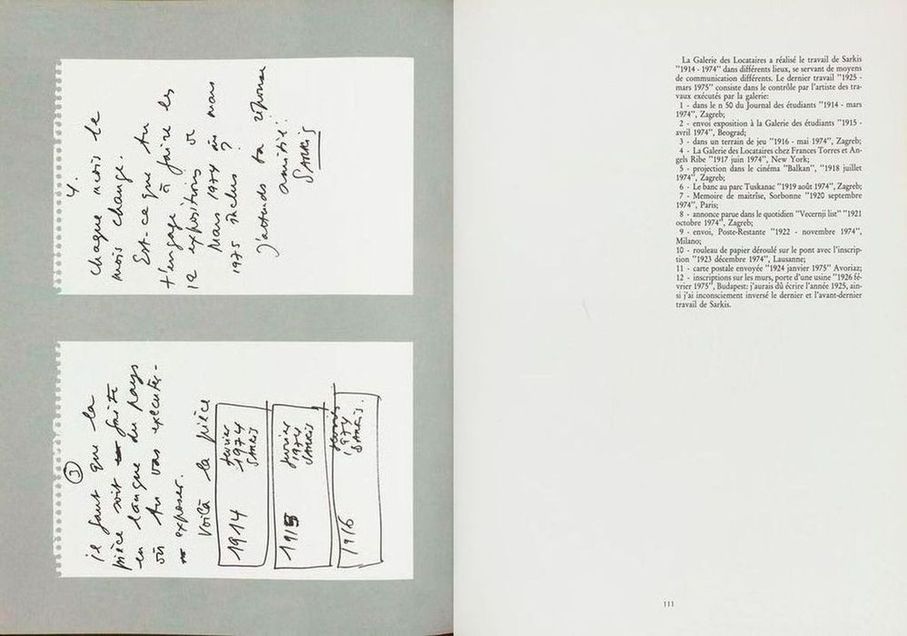 4.
chaque mois le
mois change.
Est-ce que tu
t'engage à faire les
12 expositions de
Mars 1974 à mars
1975 inclus ?
J'attends ta réponse
amitié.
SARKIS
③
il faut que la
pièce soit faite
en langue du pays
où tu vas exécuter-
exposer.
Voilà la pièce
1914 février 1974 SARKIS
1915 février 1974 SARKIS
1916 1974 SARKIS.
La Galerie des Locataires a réalisé le travail de Sarkis
"1914 - 1974" dans différents lieux, se servant de moyens
de communication différents. Le dernier travail "1925 -
mars 1975" consiste dans le contrôle par l'artiste des tra-
vaux exécutés par la galerie:
1 - dans le n 50 du Journal des étudiants "1914 - mars
1974", Zagreb;
2 - envoi exposition à la Galerie des étudiants "1915 -
avril 1974", Beograd;
3 - dans un terrain de jeu "1916 - mai 1974", Zagreb;
4 - La Galerie des Locataires chez Frances Torres et An-
gels Ribe "1917 juin 1974", New York;
5 - projection dans le cinéma "Balkan", "1918 juillet
1974", Zagreb;
6 - Le banc au parc Tuskanac "1919 août 1974", Zagreb;
7 - Memoire de maitrise, Sorbonne "1920 septembre
1974", Paris;
8 - annonce parue dans le quotidien "Vecernji list" "1921
octobre 1974", Zagreb;
9 - envoi, Poste-Restante "1922 - novembre 1974",
Milano;
10 - rouleau de papier déroulé sur le pont avec l'inscrip-
tion "1923 décembre 1974", Lausanne;
11 - carte postale envoyée "1924 janvier 1975" Avoriaz;
12 - inscriptions sur les murs, porte d'une usine "1926 fé-
vrier 1975", Budapest: j'aurais dû écrire l'année 1925, ain-
si j'ai inconsciement inversé le dernier et l'avant-dernier
travail de Sarkis.
111